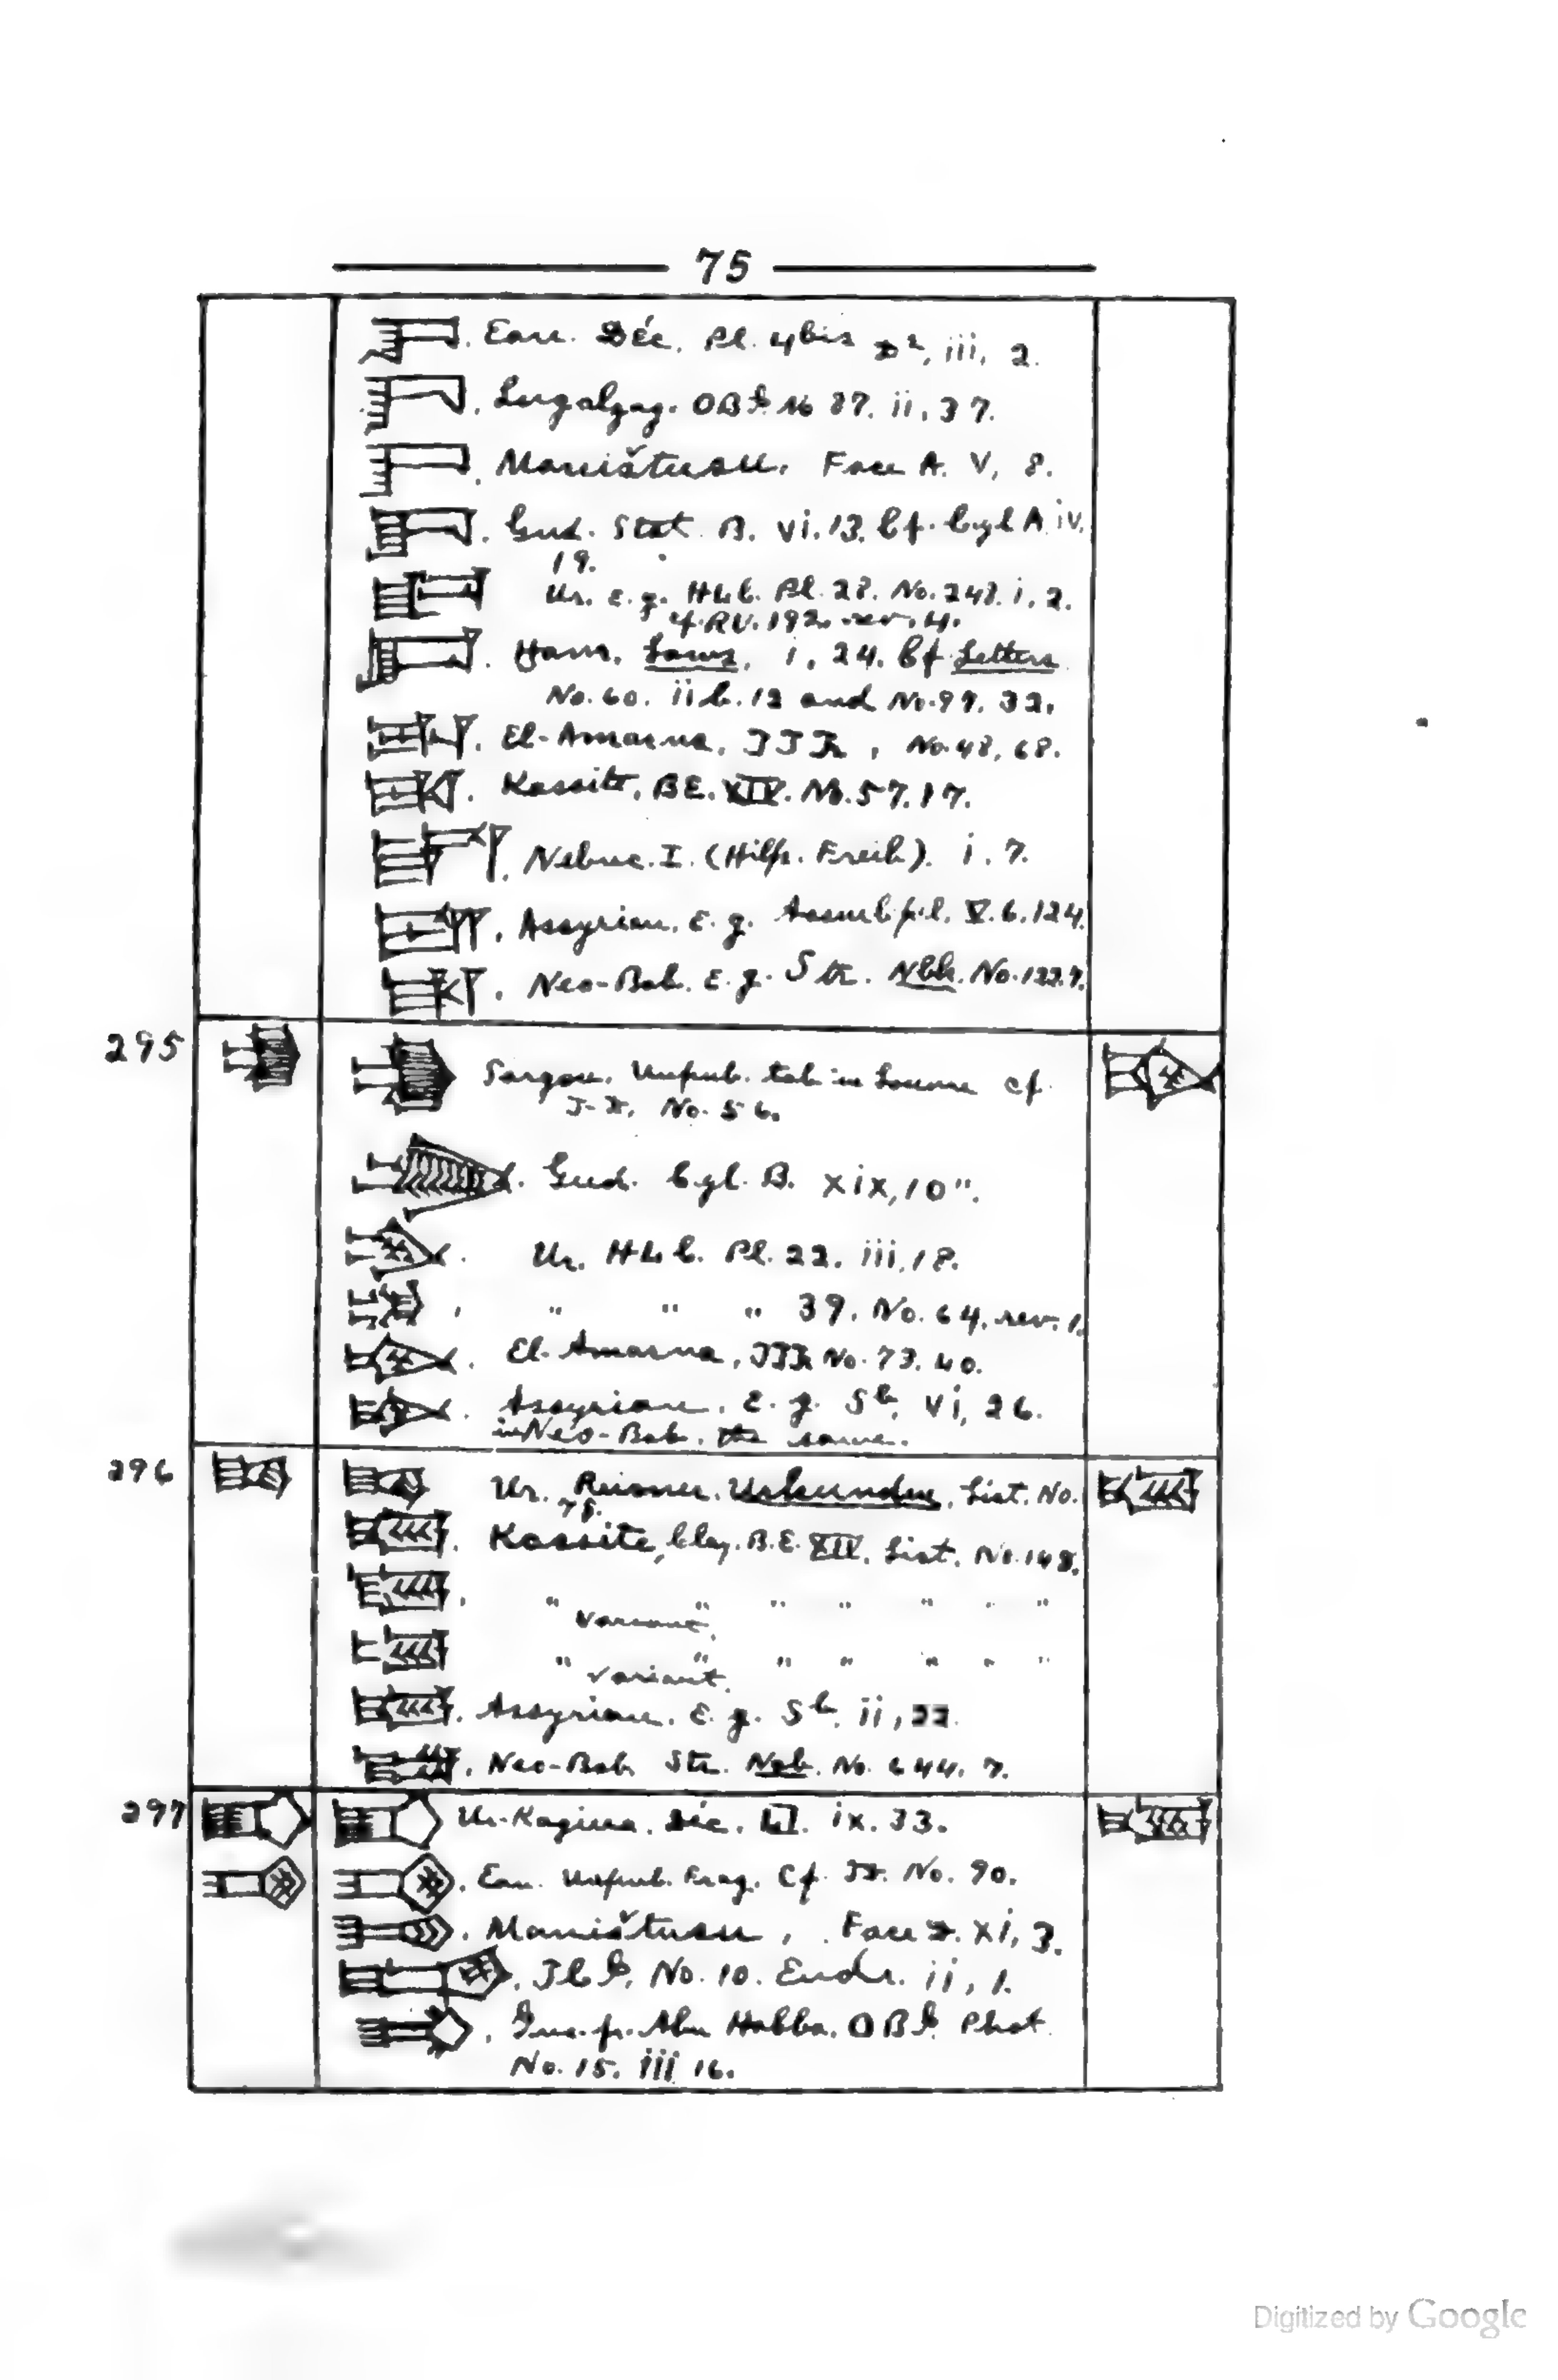 75
Ean. Déc. Pl. 4bis D², iii, 2.
Lugalzag. OBI No 87. ii, 37.
Maništusu. Face A. V, 8.
Gud. Stat. B. vi. 13. Cf. Cyl A iv.
19.
Ur. E.g. HLC. Pl. 28. No. 248. i, 2.
cf. RU. 192. rev. 4.
Ham. Laws, i, 24. Cf Letters
No. 60. ii 12 and No. 99. 32.
El-Amarna, No. 48, 68.
Kassite, BE. XIV. No. 57. 17.
Nebuc. I. (Hilp. Freib.). i. 7.
Assyrian, E.g. V. 6. 124.
Neo-Bab. E.g. Str. Nbk. No. 122. 9.
295
Sargon. Unpub. tab in Louvre cf.
T-D, No. 56.
Gud. Cyl. B. xix, 10".
Ur. HLC. Pl. 22. iii, 18.
" " " 39. No. 64. rev. 1.
El-Amarna, No. 73. 40.
Assyrian, E.g. Sb, vi, 26.
in Neo-Bab. the same.
296
Ur. Reisner. Urkunden, List. No.
78.
Kassite, Clay. B.E. XIV. List. No. 148.
" " " " " " "
variant.
" " " " " " "
variant.
Assyrian, E.g. Sb. ii, 22.
Neo-Bab. Str. No. 644. 7.
297
Ur-Kagina. Déc. ix. 33.
Ean. Unpub. Frag. Cf. TD. No. 90.
Maništusu, Face D. xi, 3.
No. 10. ii, 1.
Inc. fr. Abu Habba. OBI. Phot.
No. 15. iii 16.
Digitized by Google